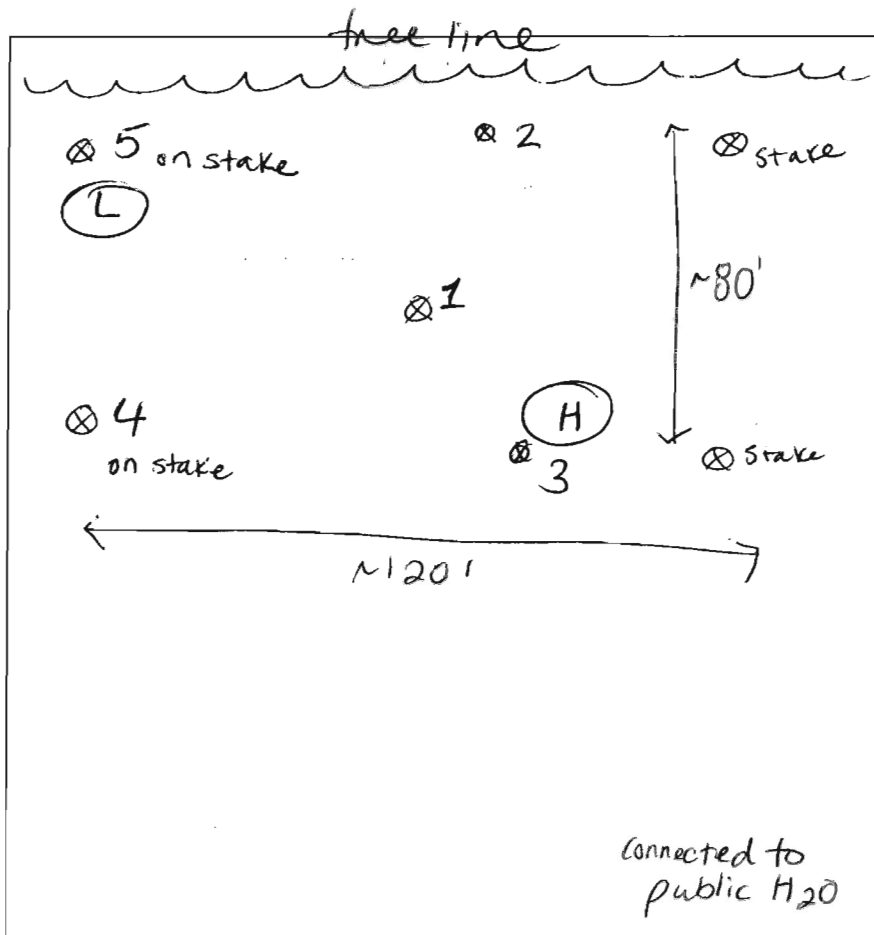 tree line
5 on stake
2
stake
L
1
~80'
4
on stake
H
3
stake
~120'
connected to
public H2O